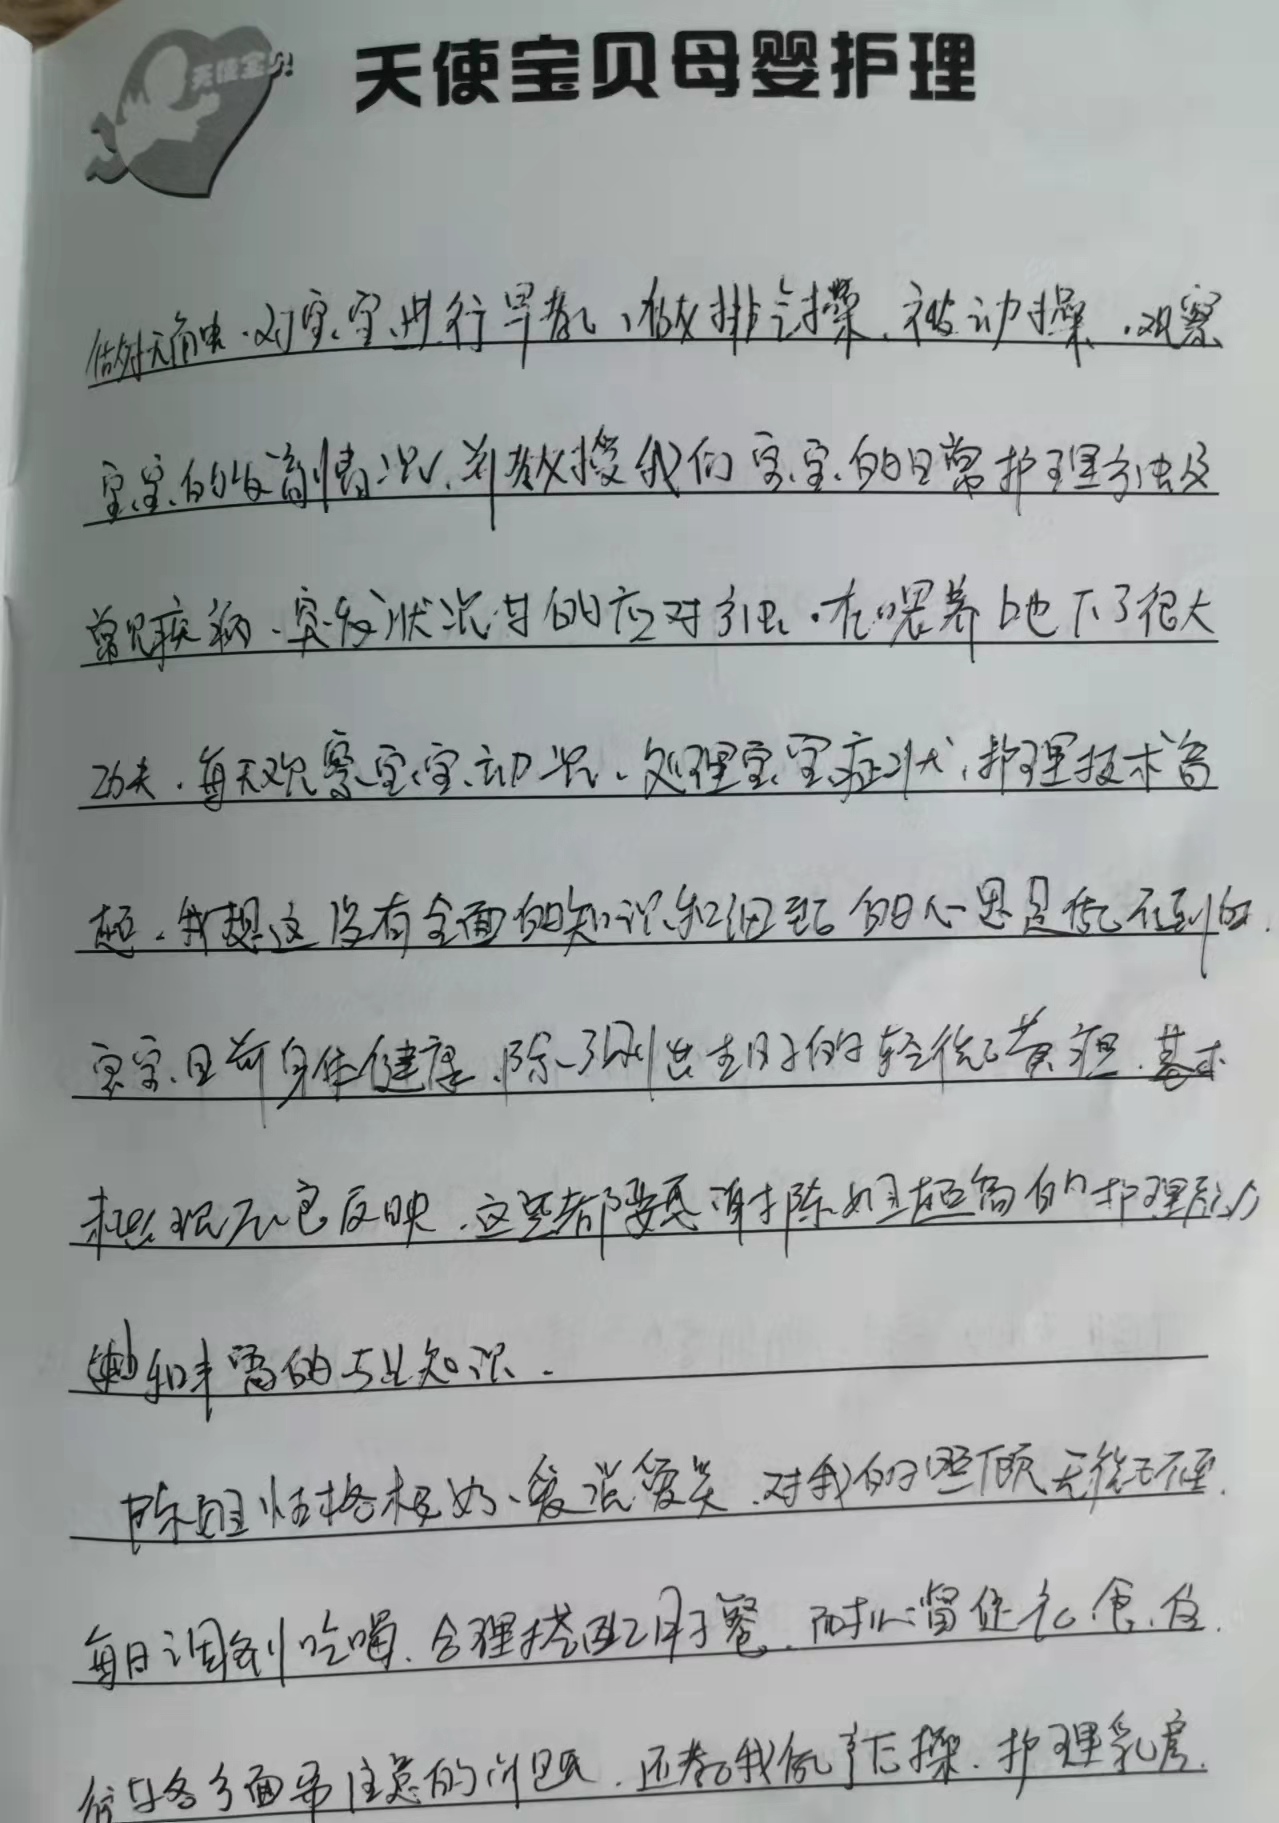 天使宝贝
天使宝贝母婴护理
对宝宝进行早教、做排气操、被动操、观察
宝宝的发育情况、并教授我们宝宝的日常护理方法及
常见疾病、突发状况时的应对方法。在喂养上她下了很大
功夫、每天观察宝宝动况、处理宝宝症状、护理技术高
超、我想这没有全面的知识和细致的心思是做不到的.
宝宝目前身体健康、除了刚出生时的轻微黄疸、基本
无反映、这些都要感谢陈姐超高的护理
和丰富的专业知识.
陈姐性格极好、爱说爱笑、对我的照顾无微不至.
每日调剂吃喝、合理搭配月子餐、耐心督促衣、食、住、
行等各方面需注意的问题、还教我做产后操、护理乳房.